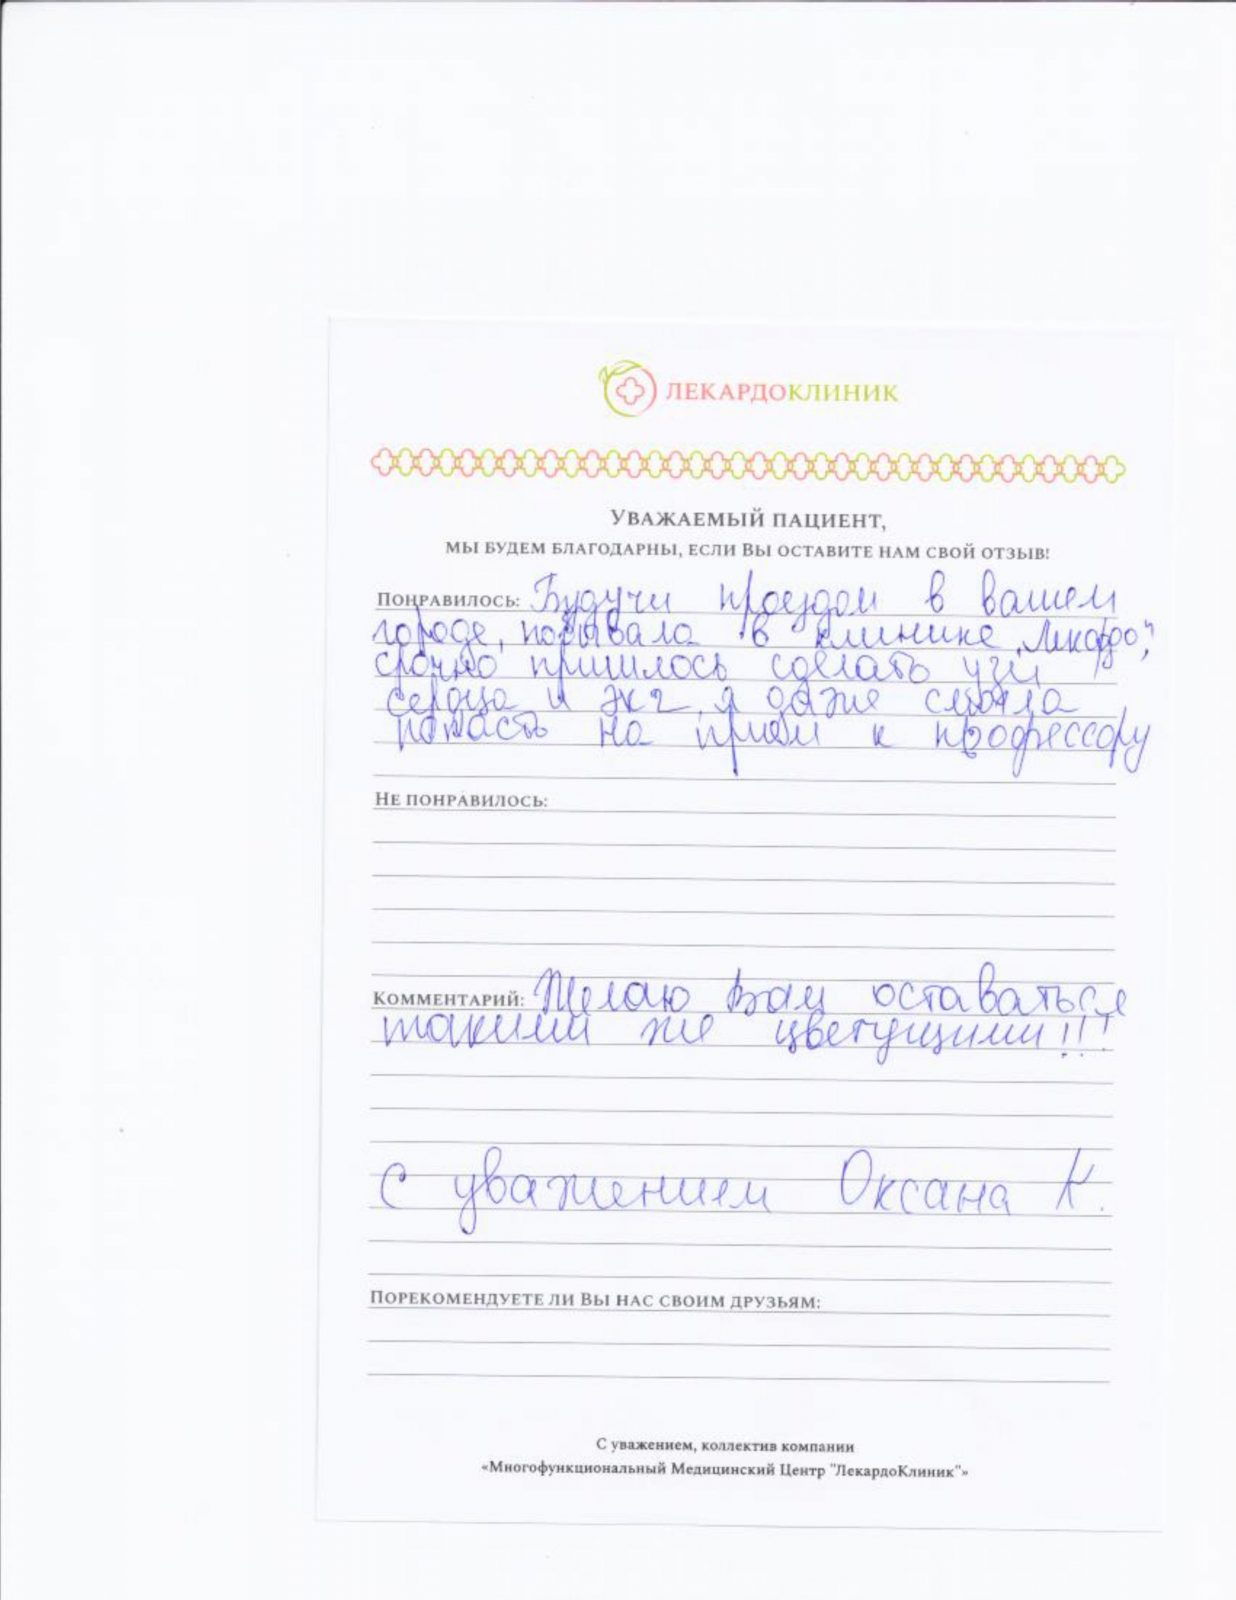 ЛЕКАРДОКЛИНИК
Уважаемый пациент,
мы будем благодарны, если Вы оставите нам свой отзыв!
Понравилось: Будучи проездом в вашем
городе, побывала в клинике „Лекардо",
срочно пришлось сделать узи
сердца и экг, я даже смогла
попасть на приём к профессору
Не понравилось:
Комментарий: Желаю Вам оставаться
такими же цветущими!!!
С уважением Оксана К.
Порекомендуете ли Вы нас своим друзьям:
С уважением, коллектив компании
«Многофункциональный Медицинский Центр "ЛекардоКлиник"»